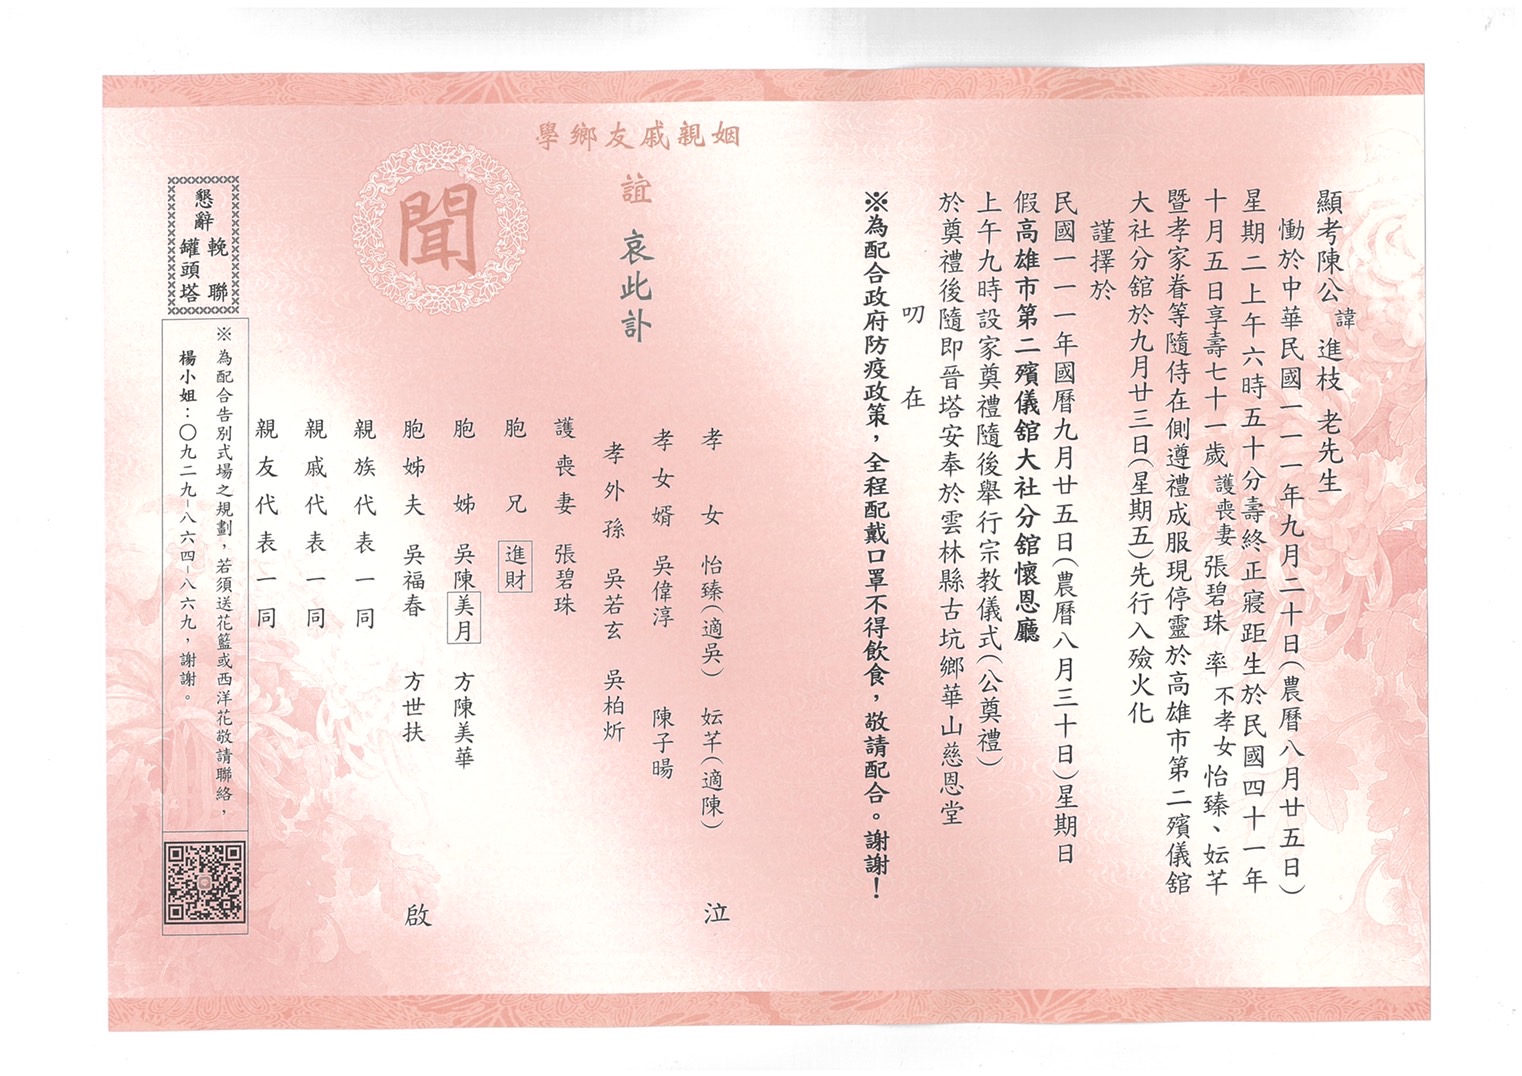 顯考陳公諱進枝老先生
慟於中華民國一一一年九月二十日(農曆八月廿五日)
星期二上午六時五十分壽終正寢距生於民國四十一年
十月五日享壽七十一歲護喪妻張碧珠率不孝女怡臻、妘芊
暨孝家眷等隨侍在側遵禮成服現停靈於高雄市第二殯儀舘
大社分舘於九月廿三日(星期五)先行入殮火化
謹擇於
民國一一一年國曆九月廿五日(農曆八月三十日)星期日
假高雄市第二殯儀舘大社分舘懷恩廳
上午九時設家奠禮隨後舉行宗教儀式(公奠禮)
於奠禮後隨即晉塔安奉於雲林縣古坑鄉華山慈恩堂
叨在
※為配合政府防疫政策，全程配戴口罩不得飲食，敬請配合。謝謝！
姻親戚友鄉學
誼 哀此訃
聞
孝女 怡臻(適吳) 妘芊(適陳) 泣
孝女婿 吳偉淳 陳子暘
孝外孫 吳若玄 吳柏炘
護喪妻 張碧珠
胞兄 進財
胞姊 吳陳美月 方陳美華
胞姊夫 吳福春 方世扶 啟
親族代表一同
親戚代表一同
親友代表一同
懇辭 輓聯 罐頭塔
※為配合告別式場之規劃，若須送花籃或西洋花敬請聯絡，
楊小姐：〇九二九–八六四–八六九，謝謝。